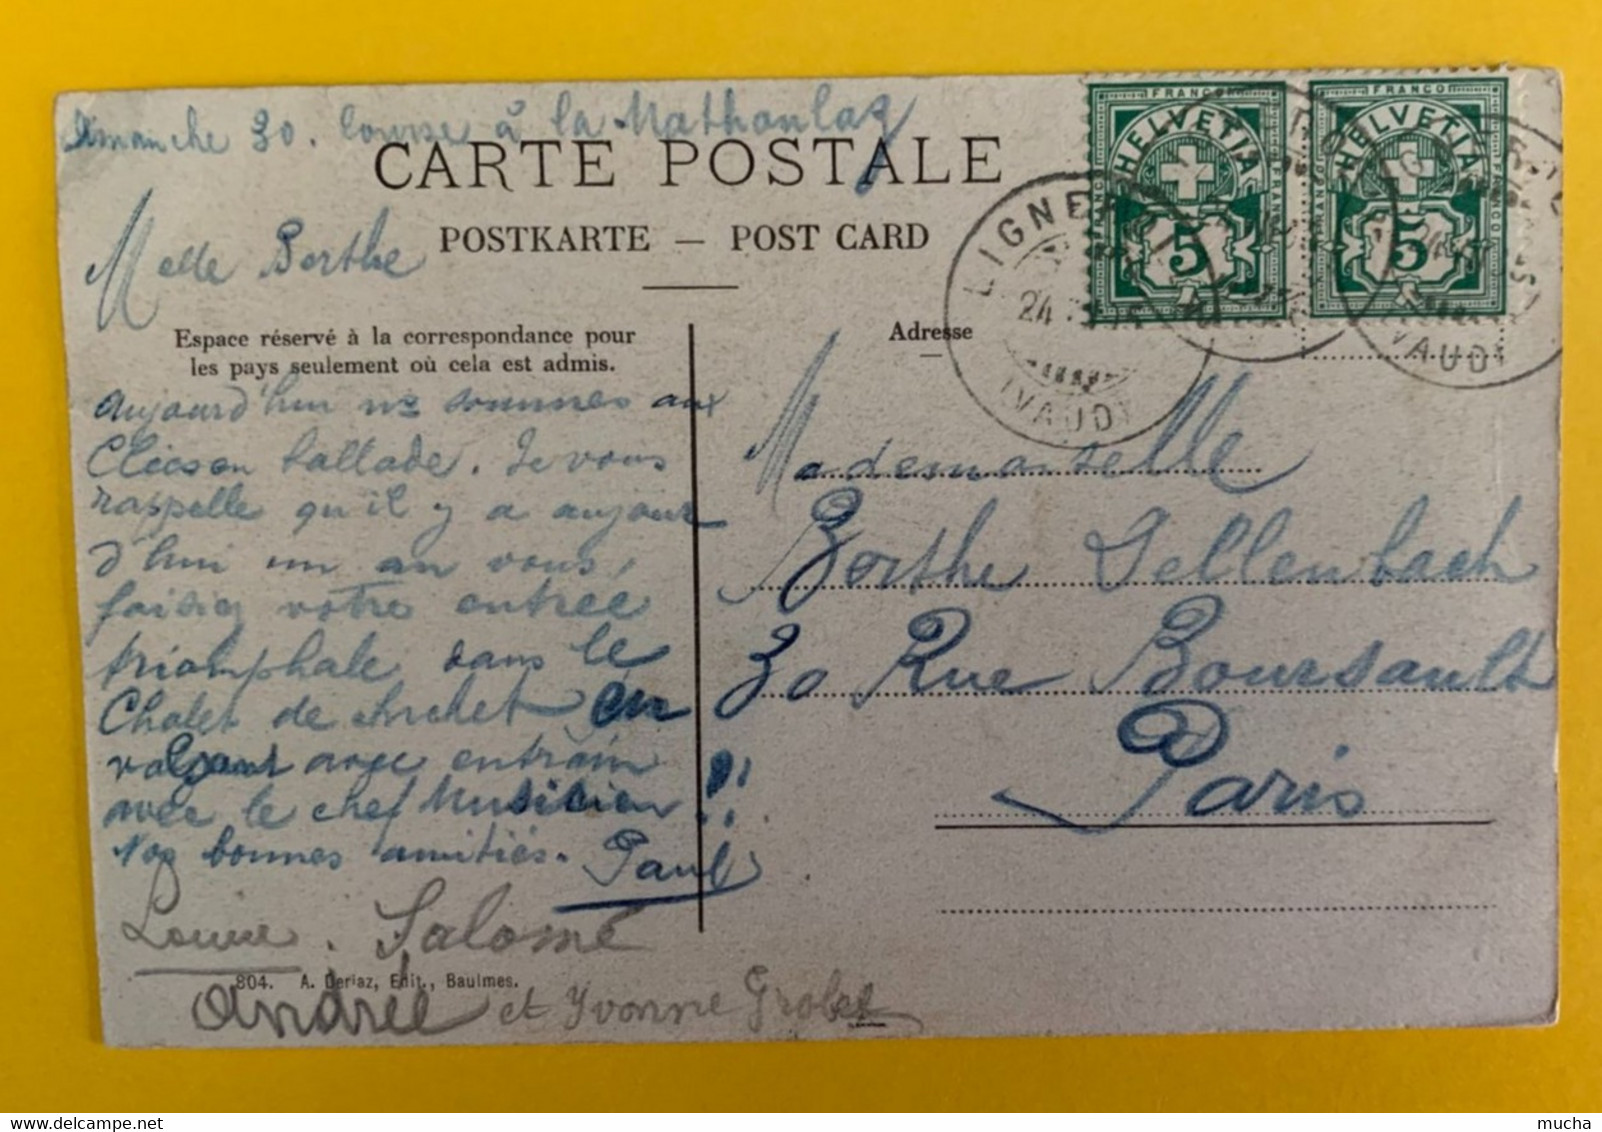 Dimanche 30. Course à la Mathoulaz
CARTE POSTALE
POSTKARTE — POST CARD
Melle Berthe
Espace réservé à la correspondance pour
les pays seulement où cela est admis.
Adresse
aujourd'hui ns sommes aux
ballade. Je vous
rappelle qu'il y a aujour
d'hui un an vous,
faisiez votre entrée
triomphale dans le
Chalet de en
valsant avec entrain
avec le chef Musicien !!
Nos bonnes amitiés. Paul
Louise. Salomé
Andrée et Yvonne
804. A. Deriaz, Edit., Baulmes.
Mademoiselle
Berthe Dellenbach
30 Rue Boursault
Paris
FRANCO
HELVETIA
5
FRANCO
HELVETIA
5
LIGNEROL
24
(VAUD)
(VAUD)
mucha